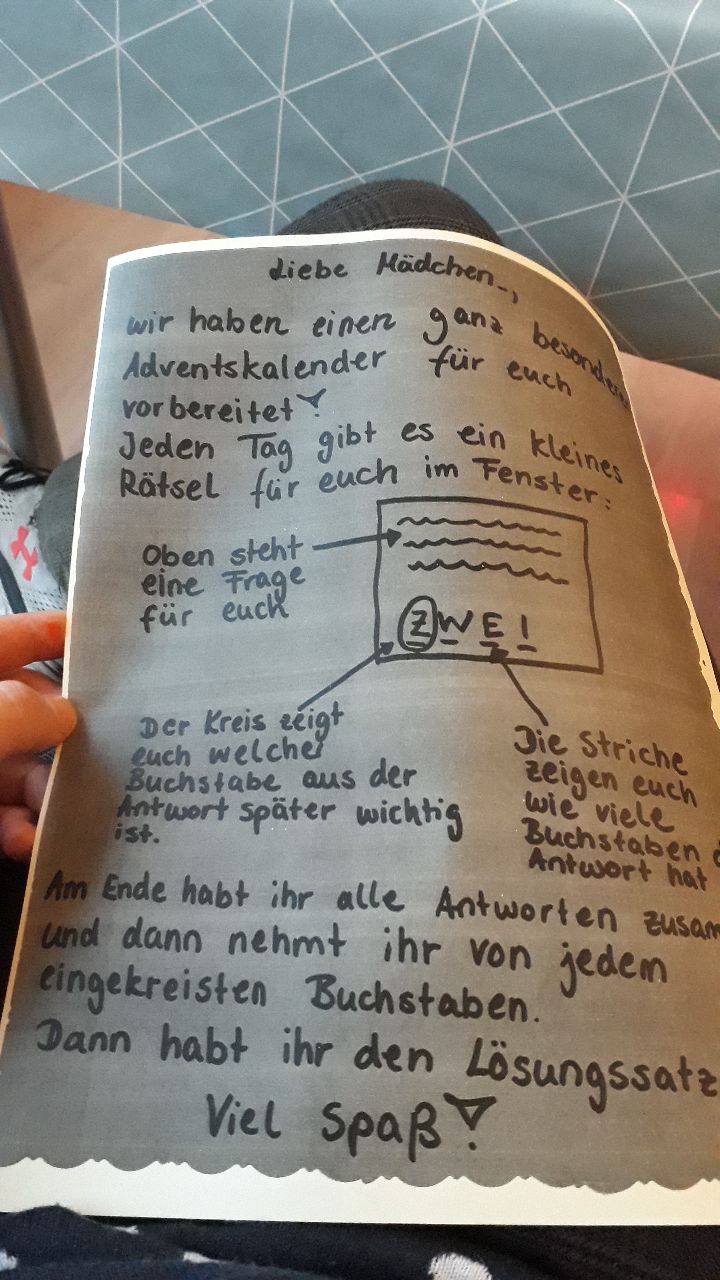 Liebe Mädchen,
wir haben einen ganz besonderen
Adventskalender für euch
vorbereitet!
Jeden Tag gibt es ein kleines
Rätsel für euch im Fenster:
Oben steht
eine Frage
für euch
ZWEI
Der Kreis zeigt
euch welcher
Buchstabe aus der
Antwort später wichtig
ist.
Die Striche
zeigen euch
wie viele
Buchstaben d
Antwort hat
Am Ende habt ihr alle Antworten zusam
und dann nehmt ihr von jedem
eingekreisten Buchstaben.
Dann habt ihr den Lösungssatz
Viel Spaß!